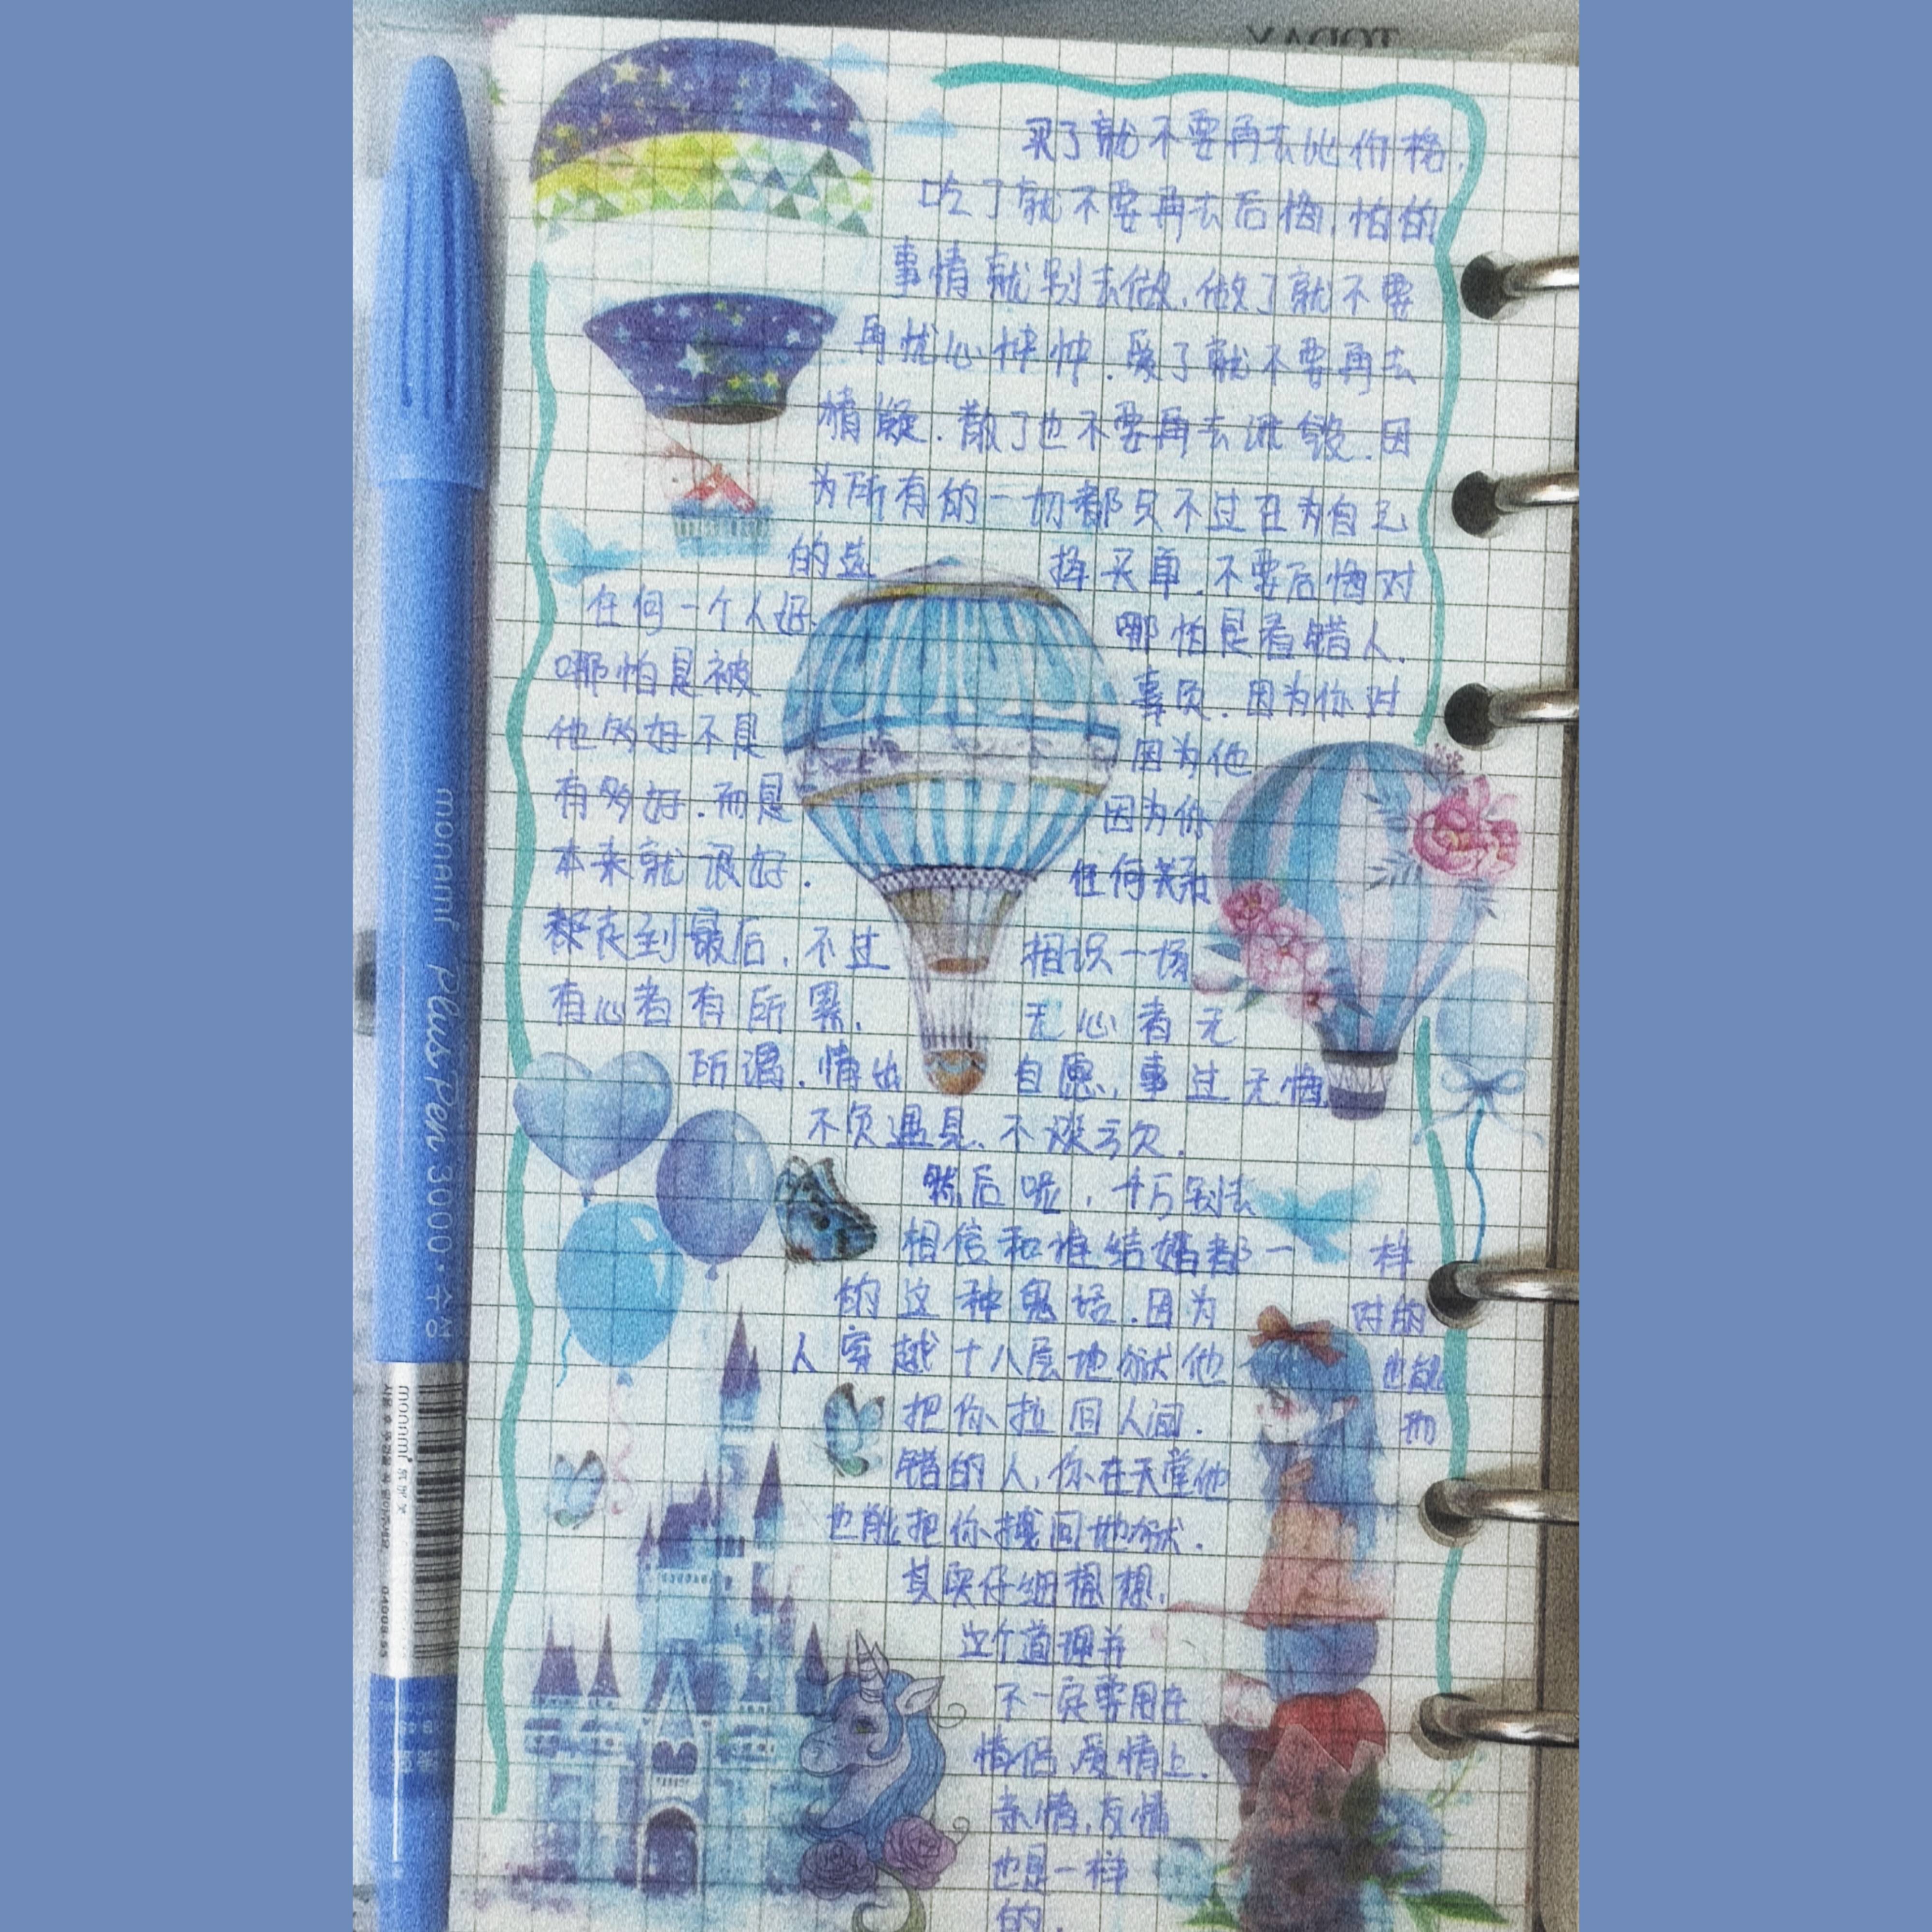 TODAY
买了就不要再去比价格.
吃了就不要再去后悔.怕的
事情就别去做.做了就不要
再忧心忡忡.爱了就不要再去
猜疑.散了也不要再去诋毁.因
为所有的一切都只不过在为自己
的选择买单.不要后悔对
任何一个人好.哪怕是看错人.
哪怕是被辜负.因为你对
他的好不是因为他
有多好.而是因为你
本来就很好.任何关系
都走到最后.不过相识一场
有心者有所累.无心者无
所谓.情出自愿,事过无悔
不负遇见.不谈亏欠.
然后呢,千万别去
相信和谁结婚都一样
的这种鬼话.因为对的
人穿越十八层地狱他也能
把你拉回人间.而
错的人,你在天堂他
也能把你拽回地狱.
其实仔细想想.
这个道理并
不一定要用在
情侣,爱情上.
亲情,友情
也是一样
的.
monami Plus Pen 3000·수성
monami